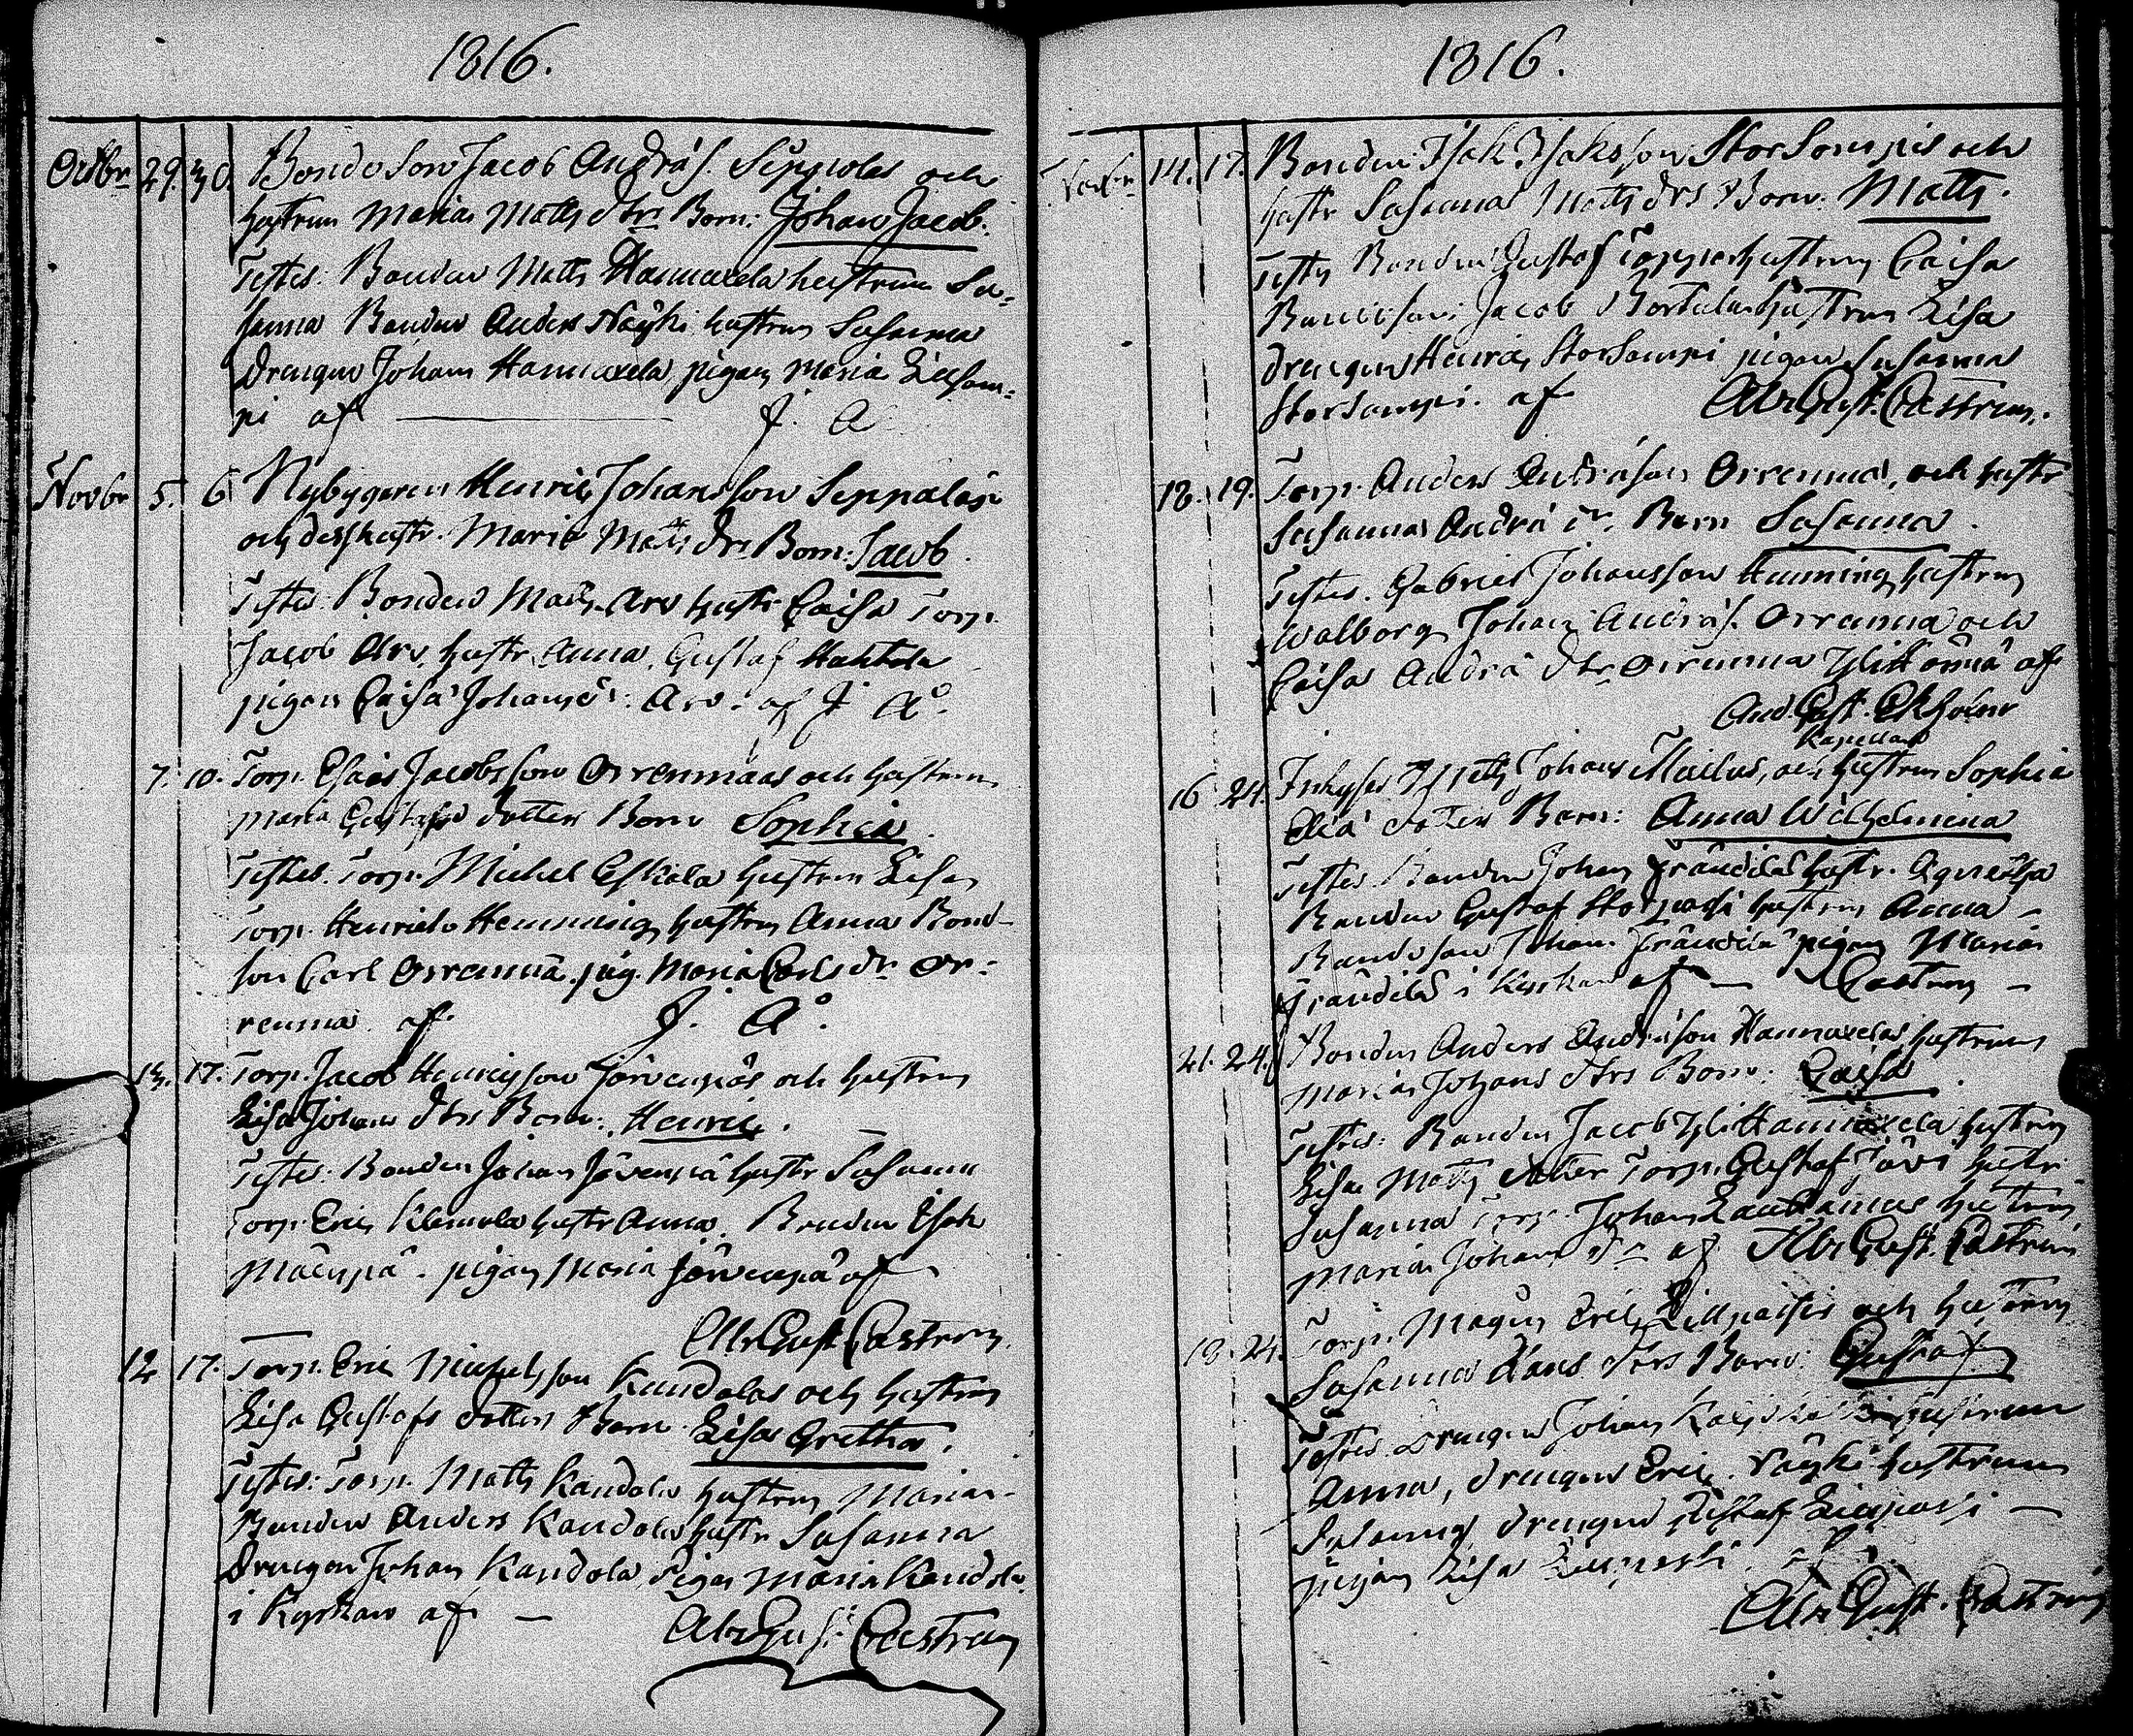 1816.
Octbr 29. 30. Bondeson Jacob Andräs. Seppolas och
hustrun Marias Matts dtrs Barn: Johan Jacob.
Testes: Bonden Matts Hannuxela hustrun Su-
sanna Bonden Anders Näyki hustrun Susanna
Drengen Johan Hannuxela, pigan Maria Lillsam-
pi af J. A
Novbr 5. 6 Nybygaren Henric Johansson Seppalas
och dess hustr. Maria Matts dtrs Barn: Jacob.
Testes: Bonden Matts Arv hustr. Caisa Torp.
Jacob Arv, hustr Anna, Gustaf Huhtala
pigan Caisa Johans dr. Arv. af J. A°.
7. 10. Torp. Esaias Jacobsson Orrenmaas och hustrun
Maria Gustafs dotters Barn Sophia.
Testes. Torp. Michel Eskola hustrun Lisa
Torp. Henrich Hemming hustrun Anna Bond-
son Carl Orrenmaa. pig. Maria Carls dr Or-
renmaa. af J. A°.
13. 17. Torp. Jacob Henricsson Järvenpäs och hustrun
Lisa Johans dtrs Barn: Henric.
Testes: Bonden Johan Järvenpä hustr Susanna
Torp. Eric Klemola hustr Anna. Bonden Isak
Mäenpä. pigan Maria Järvenpä af
Abr Gust Castren.
12 17. Torp. Eric Michelsson Kandolas och hustrun
Lisa Gustafs dotters Barn Lisa Gretha.
Testes: Torp. Matts Kandola hustrun Maria
Bonden Anders Kandola hustr Susanna
Drengen Johan Kandola, Pigan Maria Kandola
i Kyrkan af
Abr Gust Castren
1816.
14. 17. Bonden Isak Isaksson StorSompis och
hustr Susanna Matts dtrs Barn: Matts.
Testes Bonden Gustaf hustrun Caisa
Bondeson Jacob hustrun Lisa
drengen Henric StorSompi pigan Susanna
StorSompi. af Abr Gust. Castren.
18. 19. Torp. Anders Andräson Orrenmaa, och hustr
Susannas Andrä dr. Barn Susanna.
Testes. Gabriel Johansson Hemming hustrun
Walborg Johan Andräs. Orrenmaa och
Caisa Andrä dtr Orrenmaa af
And. Gust. Ekholm
Kapellan
16 24. Inhyses Matts Johans och hustrun Sophia
Eliä dotters Barn: Anna Wilhelmina
Testes. Bonden Johan Frändilä hustr. Agnetha
Bonden Gustaf hustrun Anna
Bondeson Johan Frändilä pigan Maria
Frändilä i Kyrkan af Castren
21. 24. Bonden Anders Andräson Hannuxelas hustrun
Marias Johans dtrs Barn: Caisa.
Testes: Bonden Jacob YliHannuxela hustrun
Lisa Matts dotter Torp. Gustaf hustr
Susanna Torp. Johan hustrun
Maria Johans dr af Abr Gust. Castren
18. 24. Torp. Magnus Eric och hustrun
Susanna Hans dtrs Barn: Gustaf
Testes Drengen Johan hustrun
Anna, drengen Eric Näyki hustrun
Susanna, drengen Gustaf
pigan Lisa af
Abr Gust. Castren